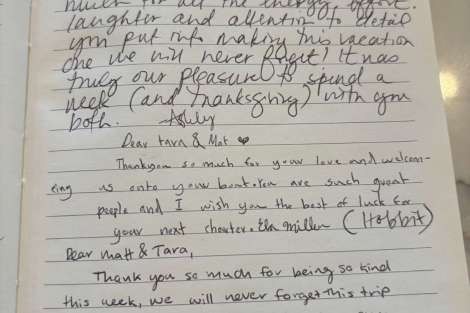 much for all the energy, effort,
laughter and attention to detail
you put into making this vacation
one we will never forget! It was
truly our pleasure to spend a
week (and Thanksgiving) with you
both.
Dear Tara & Mat
Thankyou so much for your love and welcom-
ing us onto your boat. You are such great
people and I wish you the best of luck for
your next chapter. Ella Miller (Hobbit)
Dear Matt & Tara,
Thank you so much for being so kind
this week, we will never forget this trip